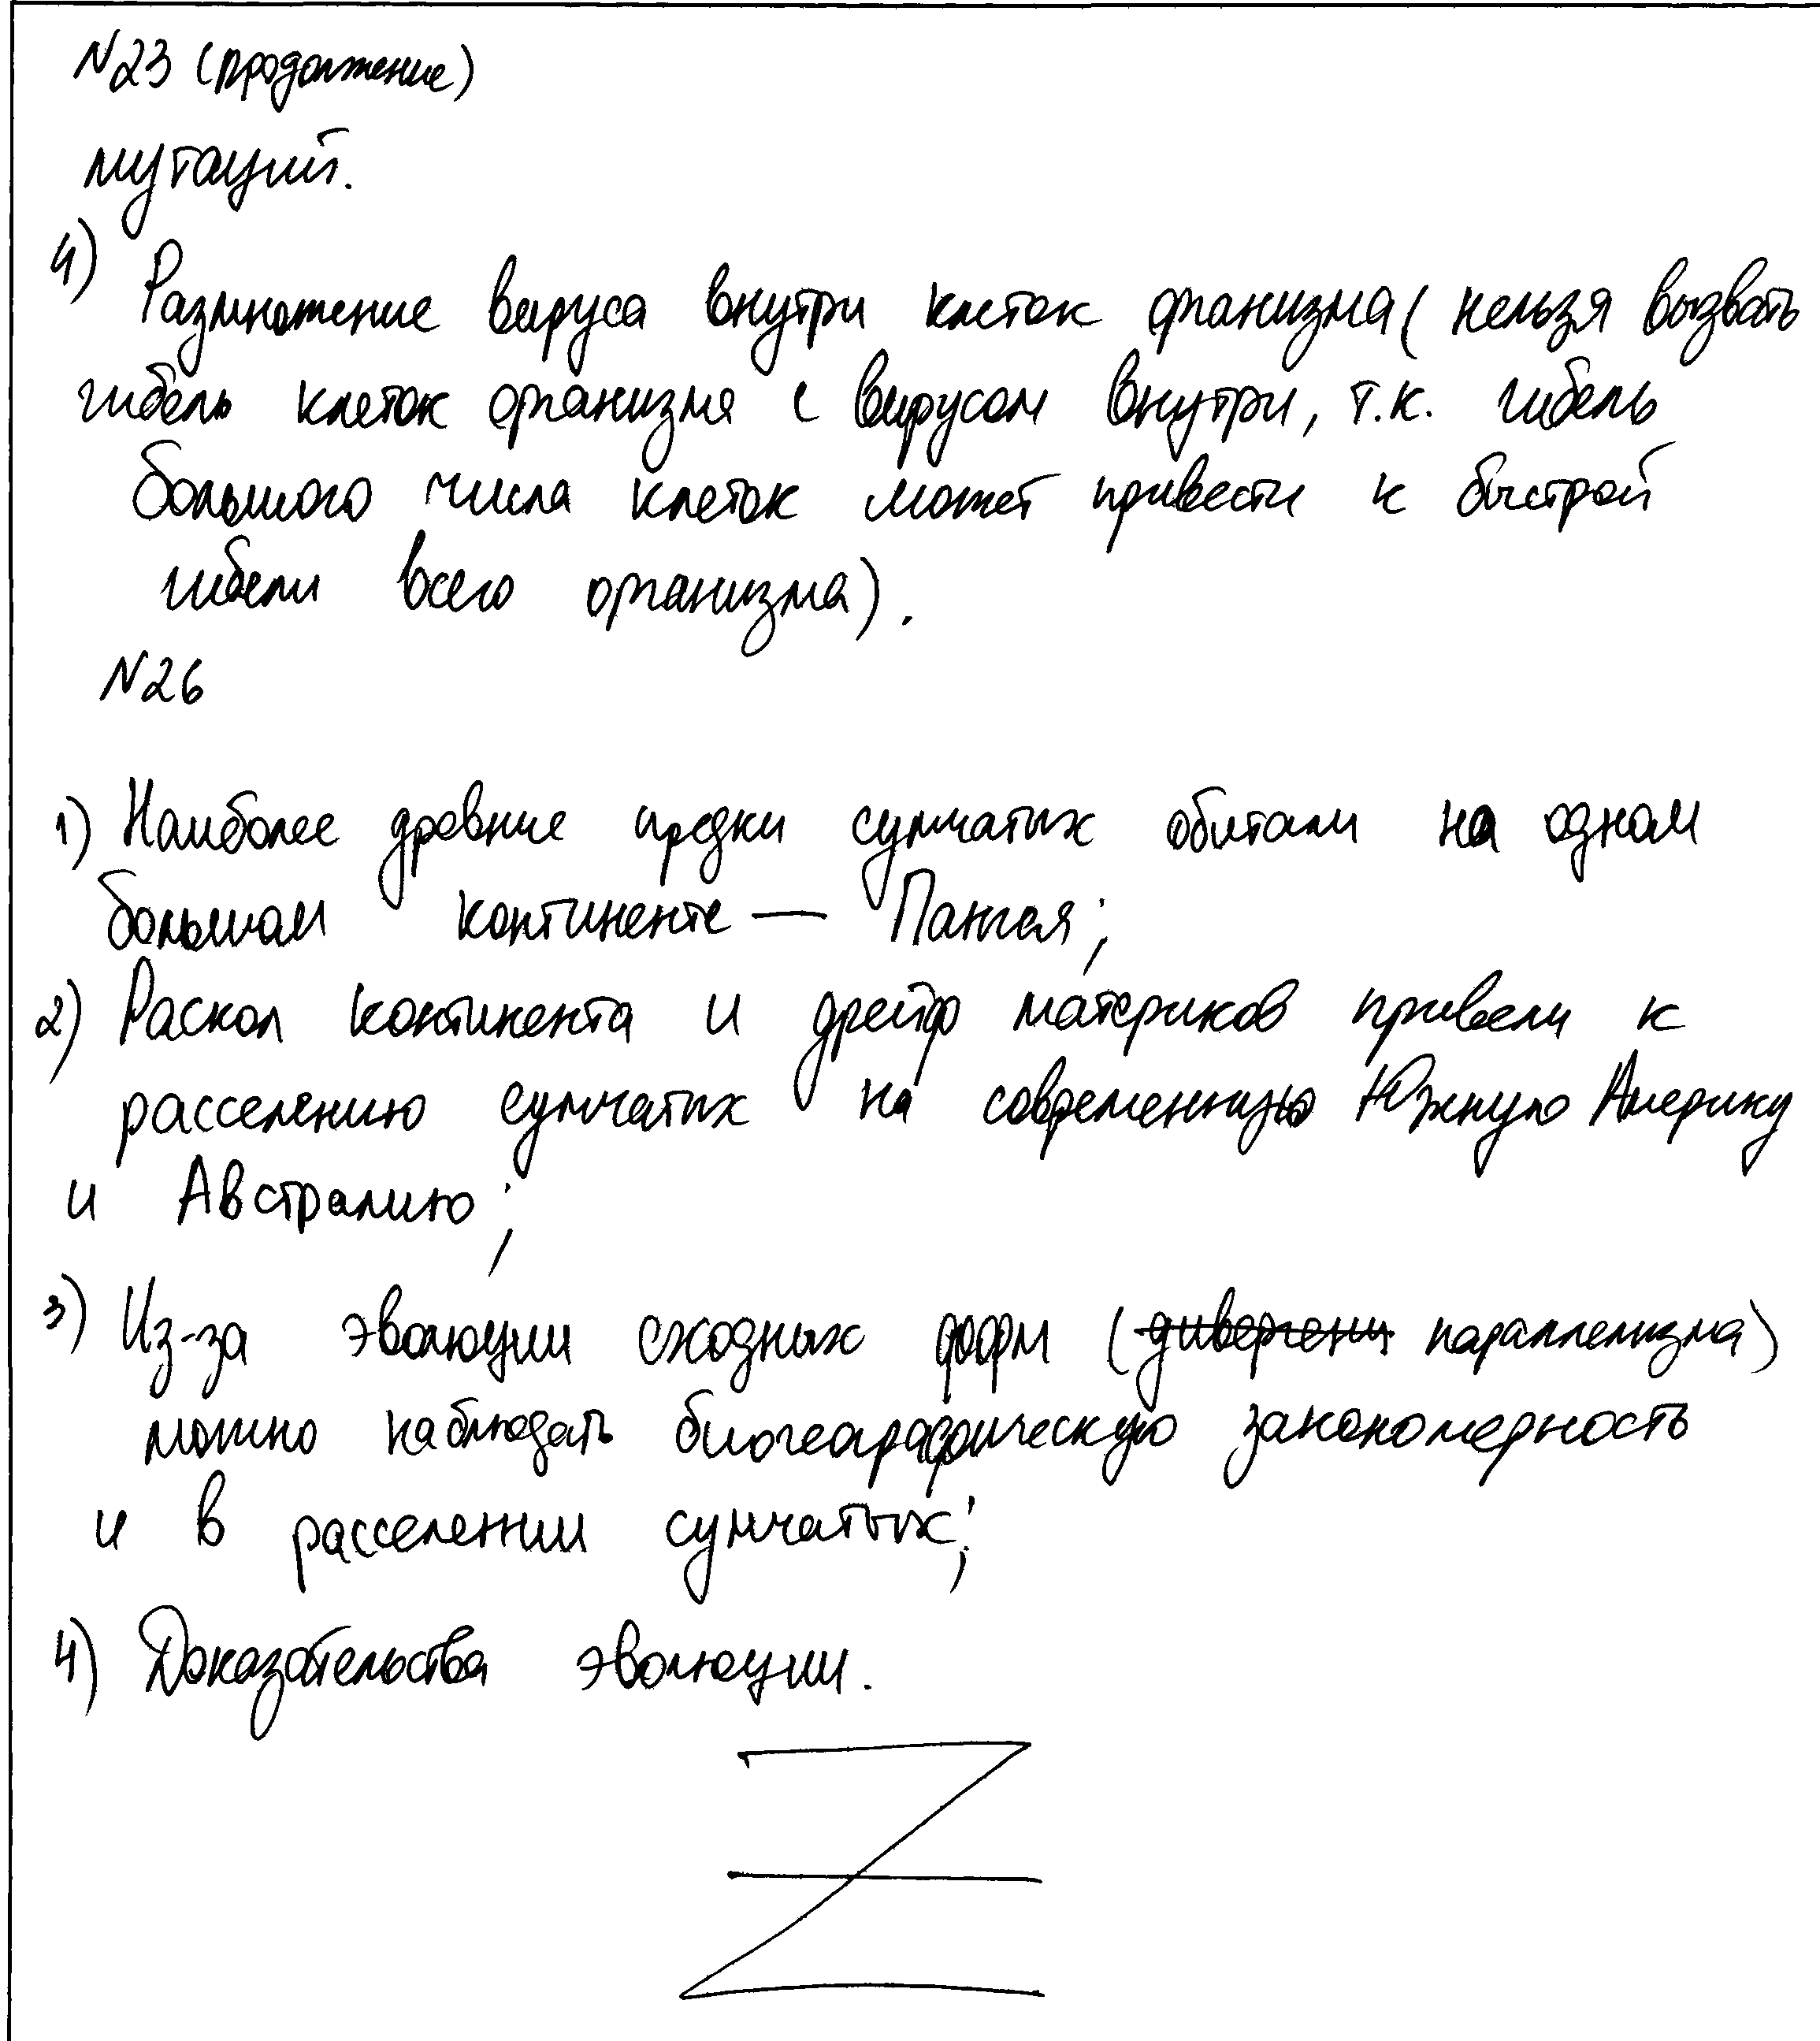 N23 (продолжение)
мутаций.
4) Размножение вируса внутри клеток организма (нельзя вызвать
гибель клеток организма с вирусом внутри, т.к. гибель
большого числа клеток может привести к быстрой
гибели всего организма).
N26
1) Наиболее древние предки сумчатых обитали на одном
большом континенте — Пангея;
2) Раскол континента и дрейф материков привели к
расселению сумчатых на современную Южную Америку
и Австралию;
3) Из-за эволюции сходных форм (дивергенц параллелизма)
можно наблюдать биогеографическую закономерность
и в расселении сумчатых;
4) Доказательства эволюции.